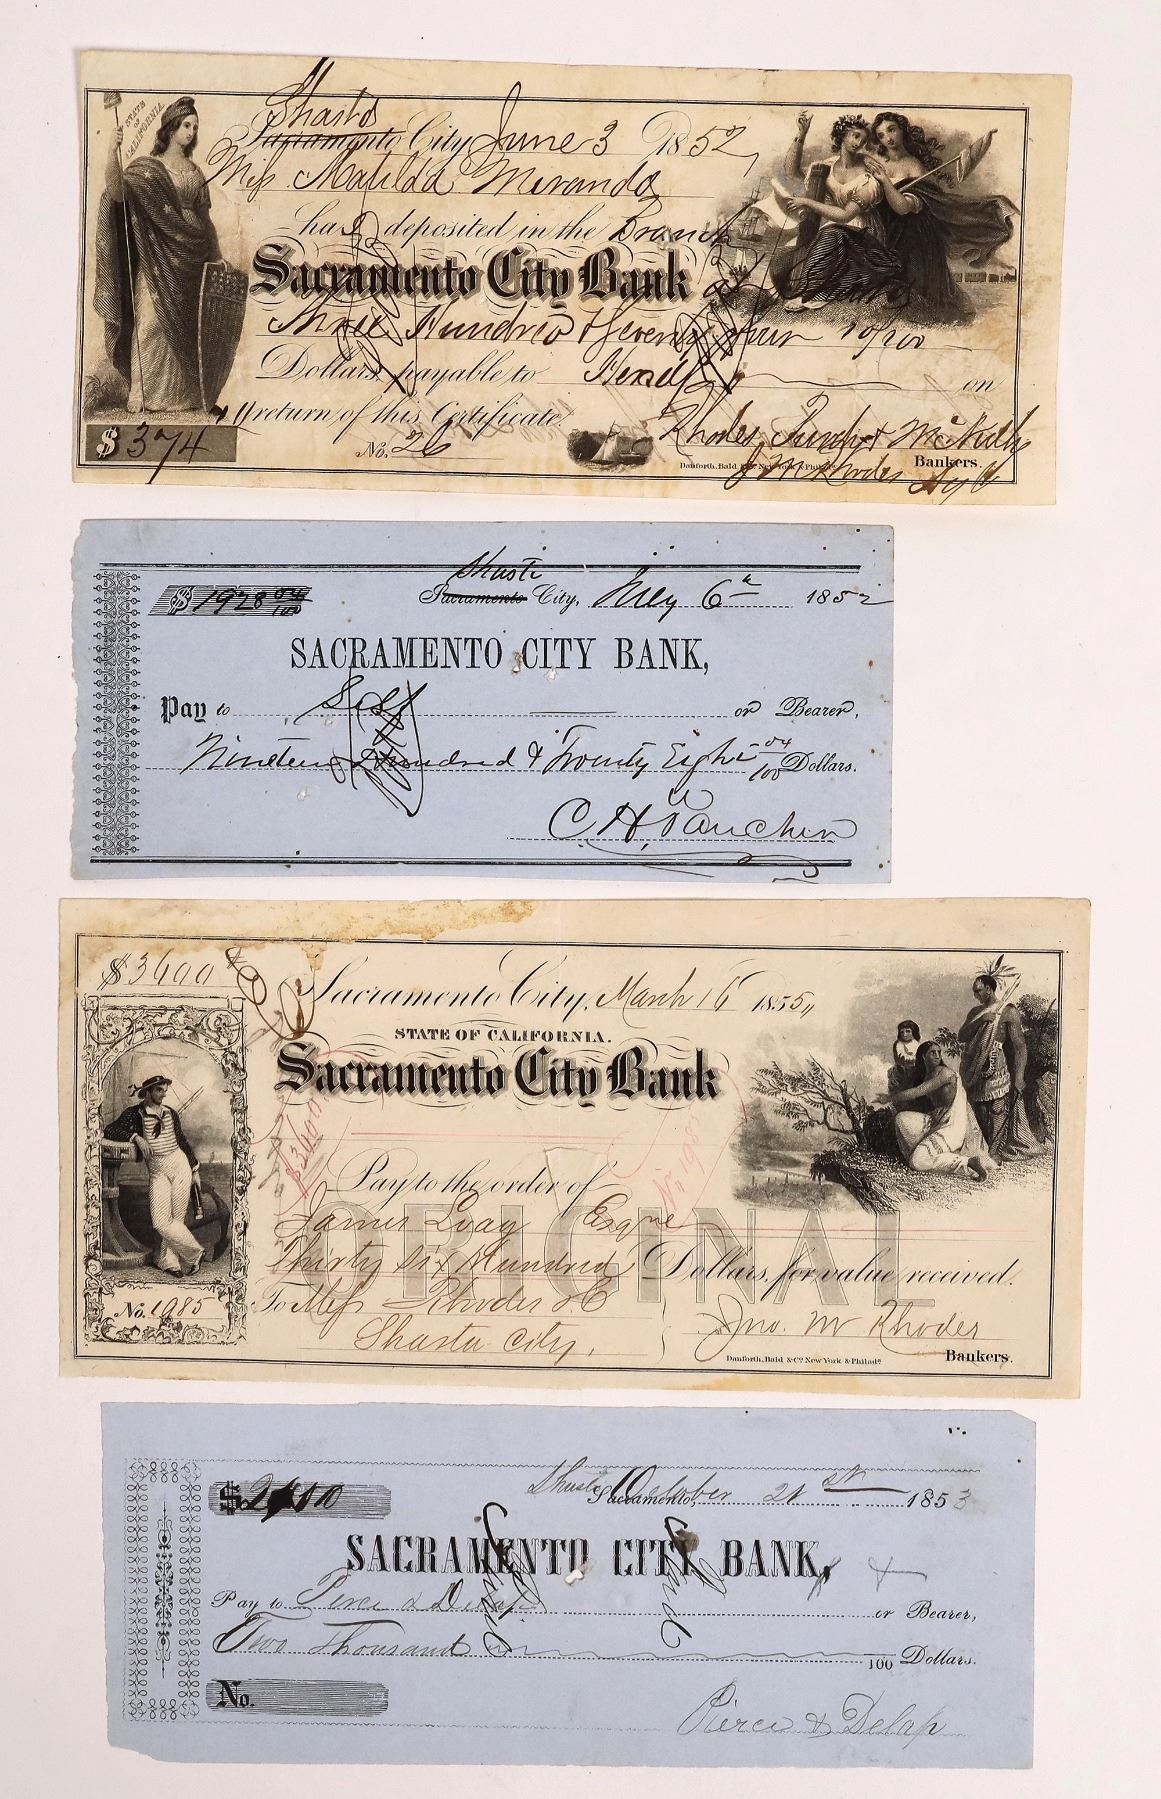 STATE OF CALIFORNIA
Shasta
Sacramento City June 3 1852,
Miss Matilda Miranda
has deposited in the Branch
Sacramento City Bank at Shasta
Three Hundred & Seventy four no/100
Dollars, payable to Herself on
return of this Certificate.
$374
No. 26
Rhodes, Purdy & McNulty
Danforth, Bald & Co. New York & Philada.
Bankers.
J M Rhodes
Shasta
$1928 04/100
Sacramento City, May 6th 1852
SACRAMENTO CITY BANK,
Pay to Self or Bearer,
Nineteen Hundred & Twenty Eight 04/100 Dollars.
C. H.
$3600
Sacramento City, March 16 1855,,
STATE OF CALIFORNIA.
Sacramento City Bank
$3600
No 1985
Pay to the order of
James Loag Esqre
Thirty Six Hundred Dollars, for value received.
ORIGINAL
No. 1985
To Mess Rhodes & C
Shasta City.
Jno. M Rhodes
Danforth, Bald & Co. New York & Philada.
Bankers.
Shasta October 21st
Sacramento, 1853
SACRAMENTO CITY BANK,
Pay to Pierce & Delap or Bearer,
Two Thousand 100 Dollars.
No.
Pierce & Delap